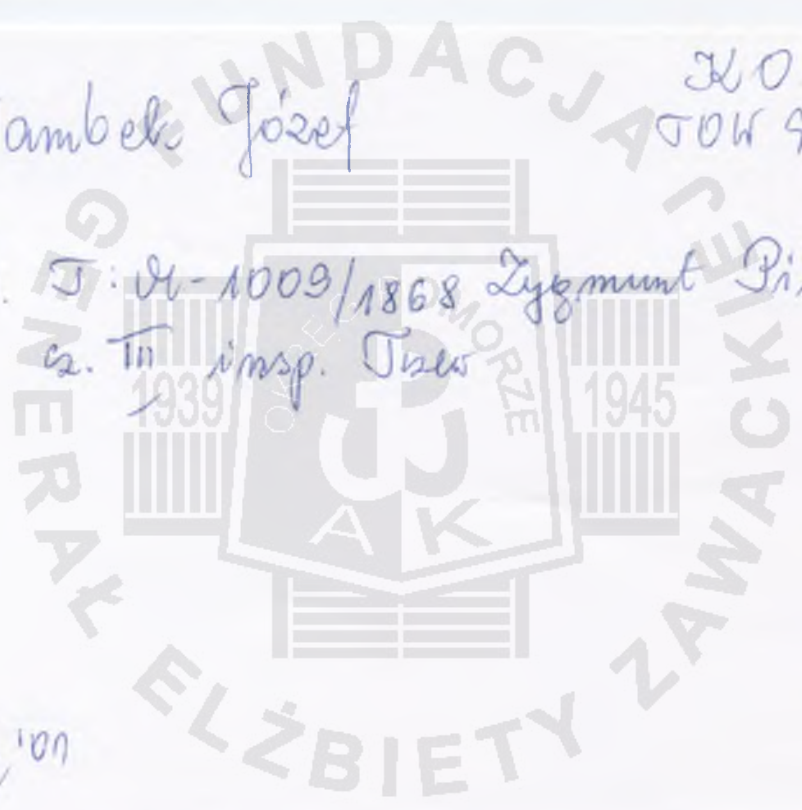 ambek Józef
KO
TOW G
T: M-1009/1868 Zygmunt Pi
cz. III insp. Tczew
'01
FUNDACJA
GENERAŁ ELŻBIETY ZAWACKIEJ
1939
1945
OKRĘG POMORZE
AK